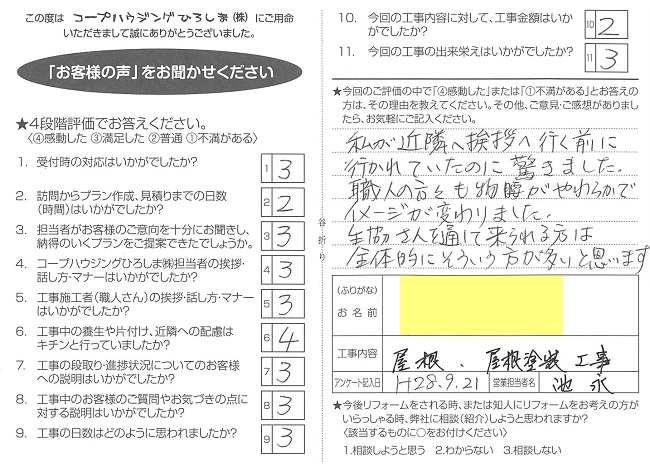 この度は コープハウジングひろしま(株) にご用命
いただきまして誠にありがとうございました。
「お客様の声」をお聞かせください
★4段階評価でお答えください。
〈④感動した ③満足した ②普通 ①不満がある〉
1. 受付時の対応はいかがでしたか?
1 3
2. 訪問からプラン作成、見積りまでの日数
(時間)はいかがでしたか?
2 2
3. 担当者がお客様のご意向を十分にお聞きし、
納得のいくプランをご提案できたでしょうか。
3 3
4. コープハウジングひろしま㈱担当者の挨拶・
話し方・マナーはいかがでしたか?
4 3
5. 工事施工者(職人さん)の挨拶・話し方・マナー
はいかがでしたか?
5 3
6. 工事中の養生や片付け、近隣への配慮は
キチンと行っていましたか?
6 4
7. 工事の段取り・進捗状況についてのお客様
への説明はいかがでしたか?
7 3
8. 工事中のお客様のご質問やお気づきの点に
対する説明はいかがでしたか?
8 3
9. 工事の日数はどのように思われましたか?
9 3
谷折り
10. 今回の工事内容に対して、工事金額はいか
がでしたか?
10 2
11. 今回の工事の出来栄えはいかがでしたか?
11 3
★今回のご評価の中で「④感動した」または「①不満がある」とお答えの
方は、その理由を教えてください。その他、ご意見・ご感想がありまし
たら、お気軽にご記入ください。
私が近隣へ挨拶へ行く前に
行かれていたのに驚きました。
職人の方々も物腰がやわらかで
イメージが変わりました。
生協さんを通して来られる方は
全体的にそういう方が多いと思います
(ふりがな)
お名前
工事内容 屋根、屋根塗装工事
アンケート記入日 H28.9.21 営業担当者名 池永
★今後リフォームをされる時、または知人にリフォームをお考えの方が
いらっしゃる時、弊社に相談(紹介)しようと思われますか?
〈該当するものに○をお付けください〉
1.相談しようと思う 2.わからない 3.相談しない